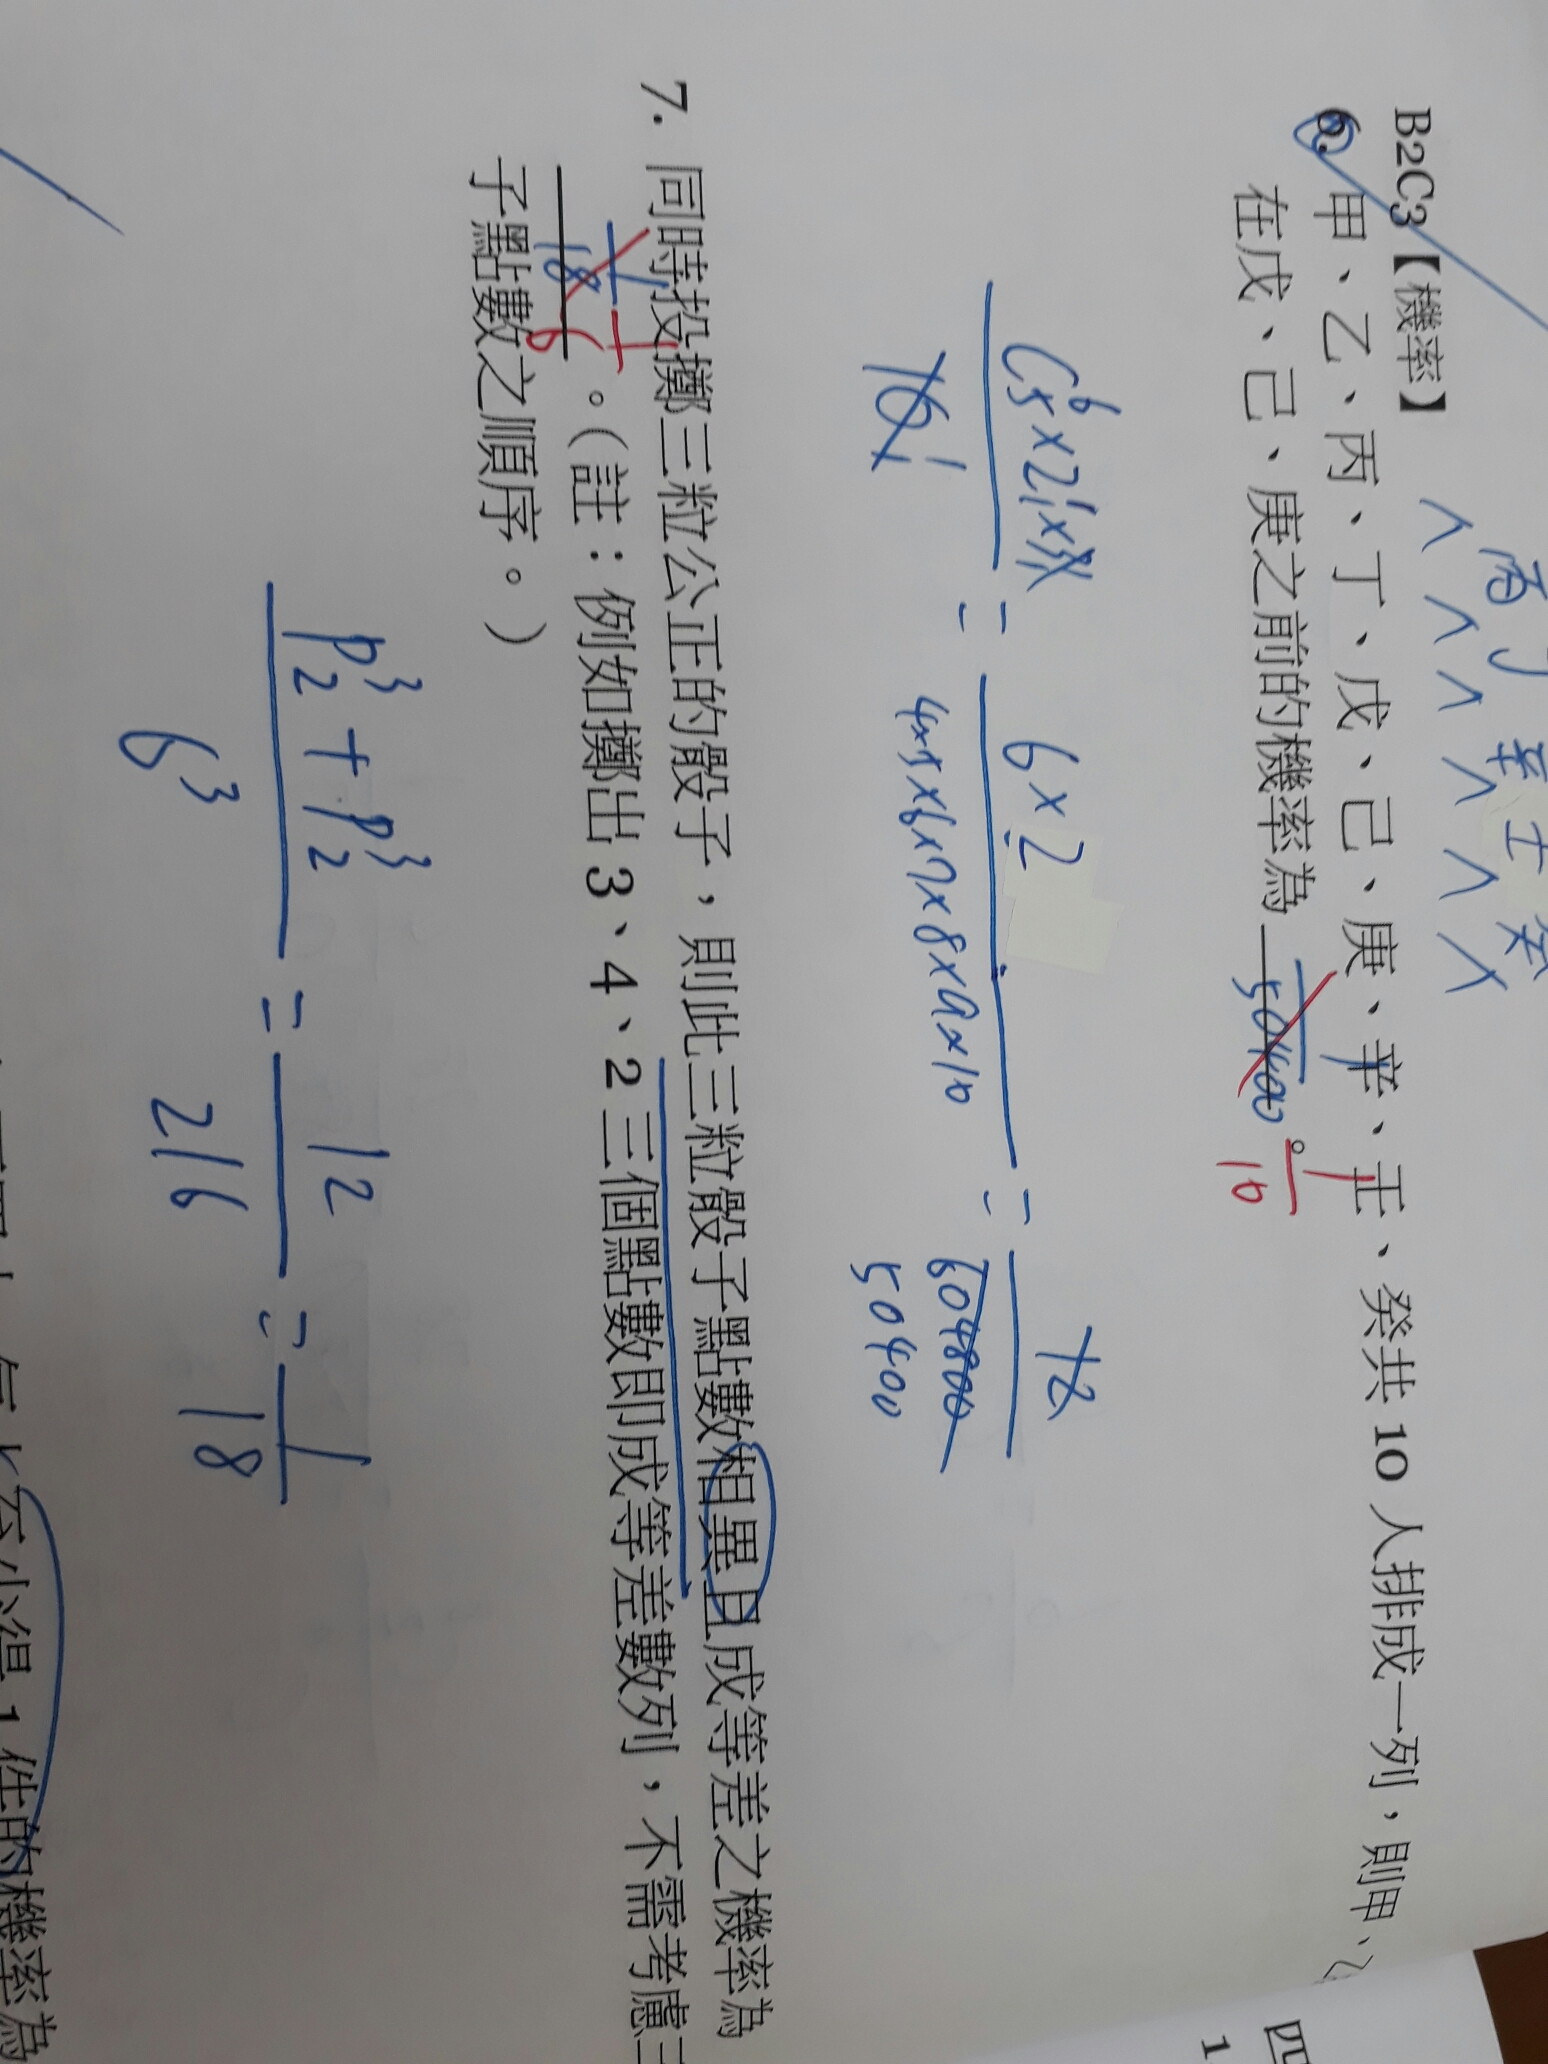 B2C3【機率】
丙 丁 辛 壬 癸
∧ ∧ ∧ ∧ ∧ ∧
6. 甲、乙、丙、丁、戊、己、庚、辛、壬、癸共 10 人排成一列，則甲、乙
在戊、己、庚之前的機率為 1/50400 。 1/10
= 6×2 / 4×5×6×7×8×9×10 = 12 / 604800
50400
7. 同時投擲三粒公正的骰子，則此三粒骰子點數相異且成等差之機率為
1/18 1/6 。（註：例如擲出 3、4、2 三個點數即成等差數列，不需考慮三
子點數之順序。）
P³₂ + P³₂ / 6³ = 12 / 216 = 1 / 18
1 件的機率為
四
1